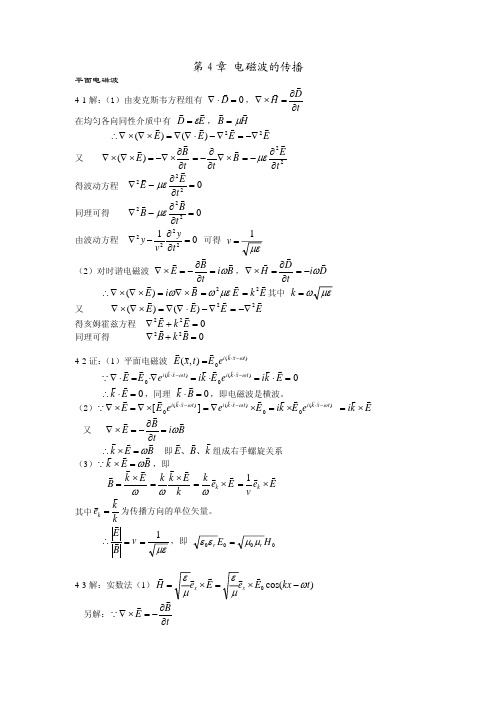 第4章 电磁波的传播
平面电磁波
4-1解：（1）由麦克斯韦方程组有 ∇·D⃗ = 0，∇×H⃗ = ∂D⃗/∂t
在均匀各向同性介质中有 D⃗ = εE⃗，B⃗ = μH⃗
∴∇×(∇×E⃗) = ∇(∇·E⃗) − ∇²E⃗ = −∇²E⃗
又 ∇×(∇×E⃗) = −∇×∂B⃗/∂t = −∂/∂t ∇×B⃗ = −με ∂²E⃗/∂t²
得波动方程 ∇²E⃗ − με ∂²E⃗/∂t² = 0
同理可得 ∇²B⃗ − με ∂²B⃗/∂t² = 0
由波动方程 ∇²y − 1/v² ∂²y/∂t² = 0 可得 v = 1/√(με)
（2）对时谐电磁波 ∇×E⃗ = −∂B⃗/∂t = iωB⃗，∇×H⃗ = ∂D⃗/∂t = −iωD⃗
∴∇×(∇×E⃗) = iω∇×B⃗ = ω²μεE⃗ = k²E⃗ 其中 k = ω√(με)
又 ∇×(∇×E⃗) = ∇(∇·E⃗) − ∇²E⃗ = −∇²E⃗
得亥姆霍兹方程 ∇²E⃗ + k²E⃗ = 0
同理可得 ∇²B⃗ + k²B⃗ = 0
4-2证：（1）平面电磁波 E⃗(x⃗,t) = E⃗₀e^{i(k⃗·x⃗−ωt)}
∵∇·E⃗ = E⃗₀·∇e^{i(k⃗·x⃗−ωt)} = ik⃗·E⃗₀e^{i(k⃗·x⃗−ωt)} = ik⃗·E⃗ = 0
∴k⃗·E⃗ = 0，同理 k⃗·B⃗ = 0，即电磁波是横波。
（2）∵∇×E⃗ = ∇×[E⃗₀e^{i(k⃗·x⃗−ωt)}] = ∇e^{i(k⃗·x⃗−ωt)}×E⃗₀ = ik⃗×E⃗₀e^{i(k⃗·x⃗−ωt)} = ik⃗×E⃗
又 ∇×E⃗ = −∂B⃗/∂t = iωB⃗
∴k⃗×E⃗ = ωB⃗ 即E⃗、B⃗、k⃗组成右手螺旋关系
（3）∵k⃗×E⃗ = ωB⃗，即
B⃗ = k⃗×E⃗/ω = k/ω k⃗×E⃗/k = k/ω e⃗ₖ×E⃗ = 1/v e⃗ₖ×E⃗
其中e⃗ₖ = k⃗/k 为传播方向的单位矢量。
∴|E⃗|/|B⃗| = v = 1/√(με)，即 √(ε₀εᵣ)E₀ = √(μ₀μᵣ)H₀
4-3解：实数法（1）H⃗ = √(ε/μ) e⃗ₓ×E⃗ = √(ε/μ) e⃗ₓ×E⃗₀cos(kx−ωt)
另解：∵∇×E⃗ = −∂B⃗/∂t